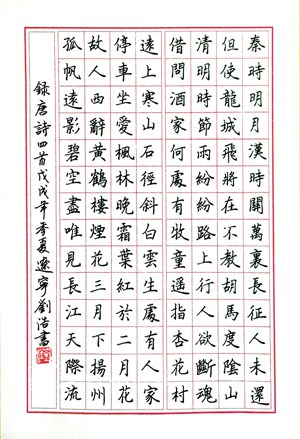 秦時明月漢時關萬裏長征人未還
但使龍城飛將在不教胡馬度陰山
清明時節雨紛紛路上行人欲斷魂
借問酒家何處有牧童遙指杏花村
遠上寒山石徑斜白雲生處有人家
停車坐愛楓林晚霜葉紅於二月花
故人西辭黃鶴樓煙花三月下揚州
孤帆遠影碧空盡唯見長江天際流
録唐詩四首戊戌年季夏遼寧劉浩書